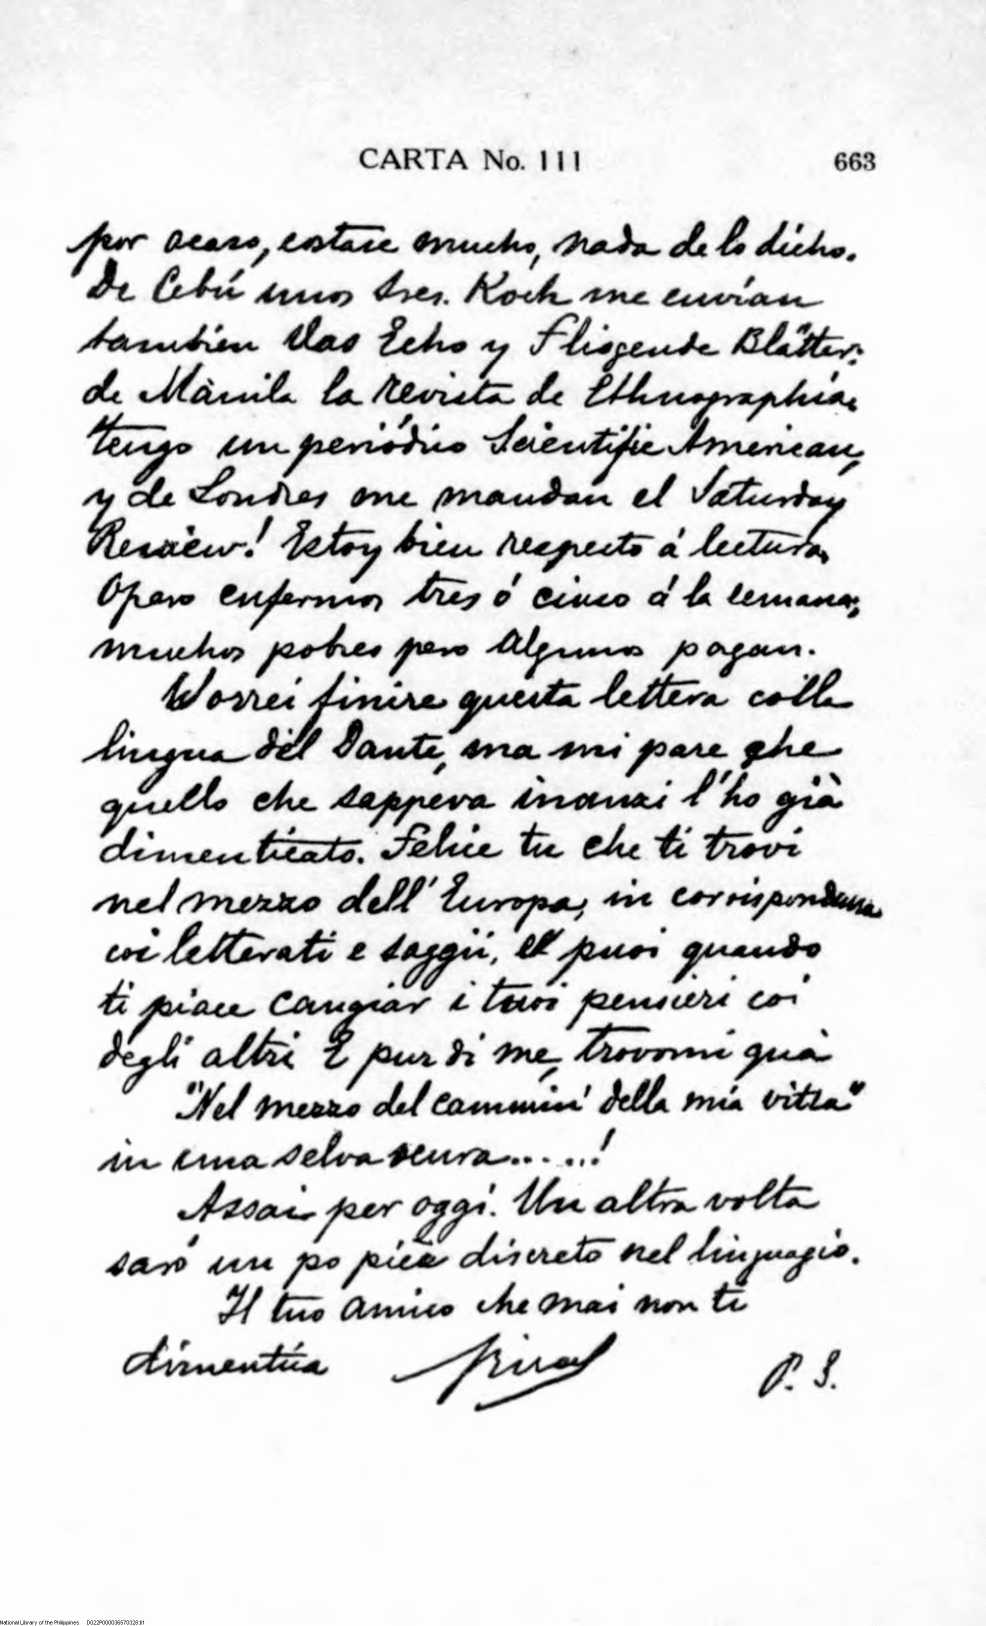 CARTA No. 111 663
por acaso, costase mucho, nada de lo dicho.
De Cebú unos Sres. Koch me envían
tambien Das Echo y Fliegende Blätter;
de Mánila la revista de Ethnographia,
tengo un periódico Scientific American,
y de Londres me mandan el Saturday
Review! Estoy bien respecto á lectura,
Opero enfermos tres ó cinco á la semana;
muchos pobres pero algunos pagan.
Vorrei finire questa lettera colla
lingua del Dante, ma mi pare che
quello che sappeva inanzi l'ho già
dimenticato. Felice tu che ti trovi
nel mezzo dell' Europa, in corrispondenza
coi letterati e saggii, e puoi quando
ti piace cangiar i tuoi pensieri coi
degli altri E pur di me, trovomi quà
"Nel mezzo del cammin' della mia vitta"
in una selva scura......!
Assai per oggi. Un altra volta
saró un po piu discreto nel linguagio.
Il tuo amico che mai non ti
dimentica Rizal P. S.
National Library of the Philippines